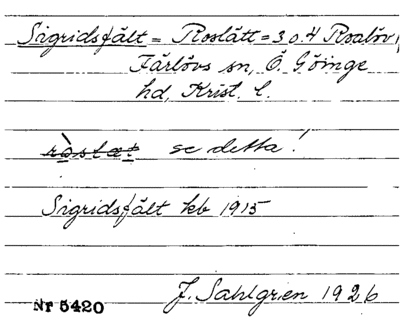 Sigridsfält = Roslätt = 3 o. 4 Roalöv,
Färlövs sn, Ö. Göinge
hd, Krist. l.
ròslæt se detta!
Sigridsfält kb 1915
J. Sahlgren 1926
Nr 5420